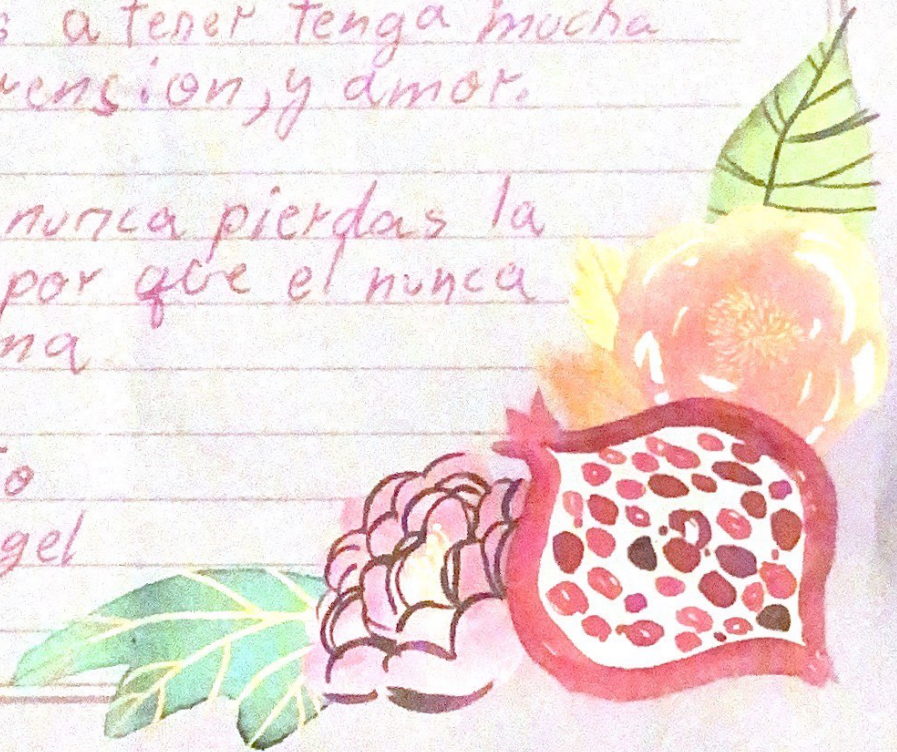 s a tener tenga mucha
rension, y amor.
nunca pierdas la
por que el nunca
na
to
gel